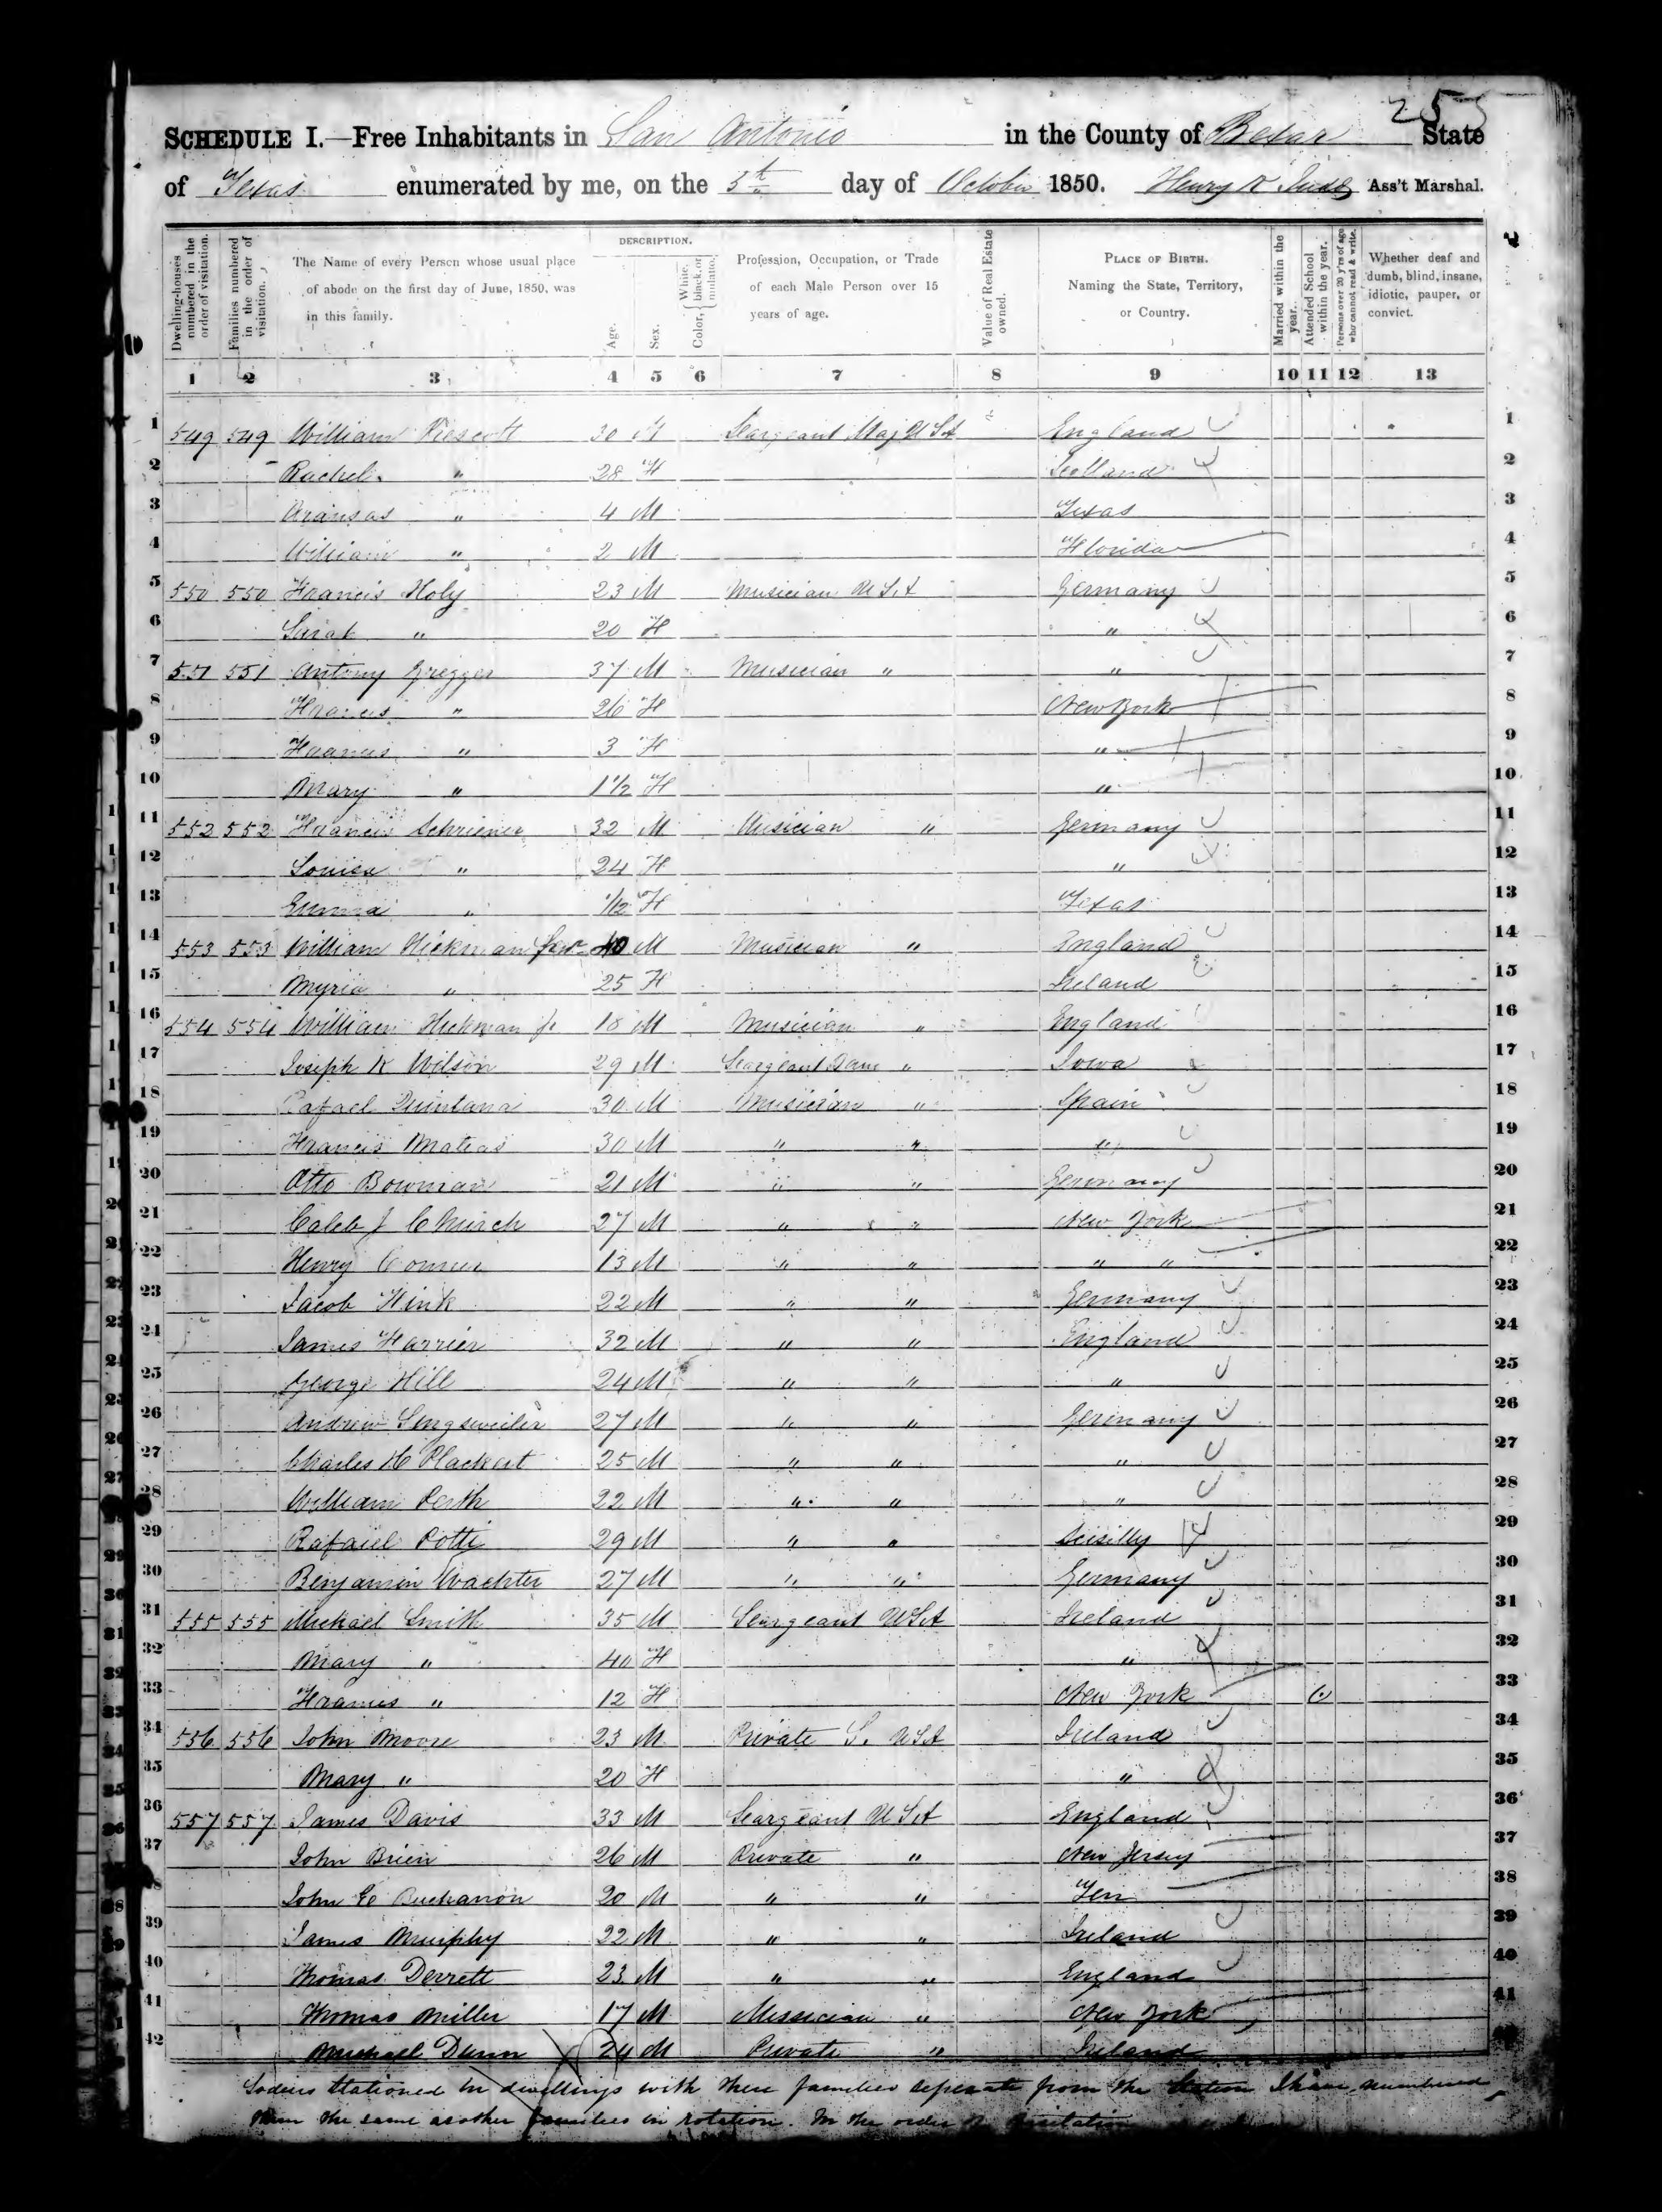 255
SCHEDULE I.—Free Inhabitants in San Antonio in the County of Bexar State
of Texas enumerated by me, on the 5th day of October 1850. Henry K Ass't Marshal.
Dwelling-houses numbered in the order of visitation.
Families numbered in the order of visitation.
The Name of every Person whose usual place of abode on the first day of June, 1850, was in this family.
DESCRIPTION.
Age.
Sex.
Color, { White, black, or mulatto.
Profession, Occupation, or Trade of each Male Person over 15 years of age.
Value of Real Estate owned.
PLACE OF BIRTH. Naming the State, Territory, or Country.
Married within the year.
Attended School within the year.
Persons over 20 y'rs of age who cannot read & write.
Whether deaf and dumb, blind, insane, idiotic, pauper, or convict.
1 2 3 4 5 6 7 8 9 10 11 12 13
1 549 549 William Prescott 30 M Seargeant Maj U S A England 1
2 Rachel " 28 F Scotland 2
3 Aransas " 4 M Texas 3
4 William " 2 M Florida 4
5 550 550 Francis Holy 23 M Musician U S A Germany 5
6 Sarah " 20 F " 6
7 551 551 Antony Gregger 37 M Musician " " 7
8 Francis " 26 F New York 8
9 Francis " 3 F " 9
10 Mary " 1 1/2 F " 10
11 552 552 Francis Schriener 32 M Musician " Germany 11
12 Louisa " 24 F " 12
13 Emma " 1/12 F Texas 13
14 553 553 William Hickman Senr 40 M Musician " England 14
15 Myria " 25 F Ireland 15
16 554 554 William Hickman Jr 18 M Musician " England 16
17 Joseph K Wilson 29 M Seargeant " Iowa 17
18 Rafael Quintana 30 M Musician " Spain 18
19 Francis Matias 30 M " " " 19
20 Otto Bowman 21 M " " Germany 20
21 Caleb J Church 27 M " " New York 21
22 Henry Comer 13 M " " " " 22
23 Jacob Fink 22 M " " Germany 23
24 James Farrier 32 M " " England 24
25 George Hill 24 M " " " 25
26 Andrew Lingsweiler 27 M " " Germany 26
27 Charles H Plackert 25 M " " " 27
28 William Perth 22 M " " " 28
29 Rafaiel Potti 29 M " " Scisilly 29
30 Benjamin Wachter 27 M " " Germany 30
31 555 555 Michael Smith 35 M Seargeant U S A Ireland 31
32 Mary " 40 F " 32
33 Frances " 12 F New York 33
34 556 556 John Moore 23 M Private S. U S A Ireland 34
35 Mary " 20 F " 35
36 557 557 James Davis 33 M Seargeant U S A England 36
37 John Brien 26 M Private " New Jersey 37
38 John E Buchanon 20 M " " Ten 38
39 James Murphy 22 M " " Ireland 39
40 Thomas Derrett 23 M " " England 40
41 Thomas Miller 17 M Mussician " New York 41
42 Michael Dunn 24 M Private " Ireland 42
Soders Stationed in dwellings with there families seperate from the Station I have numbered
them the same as other families in rotation. In the order of visitation